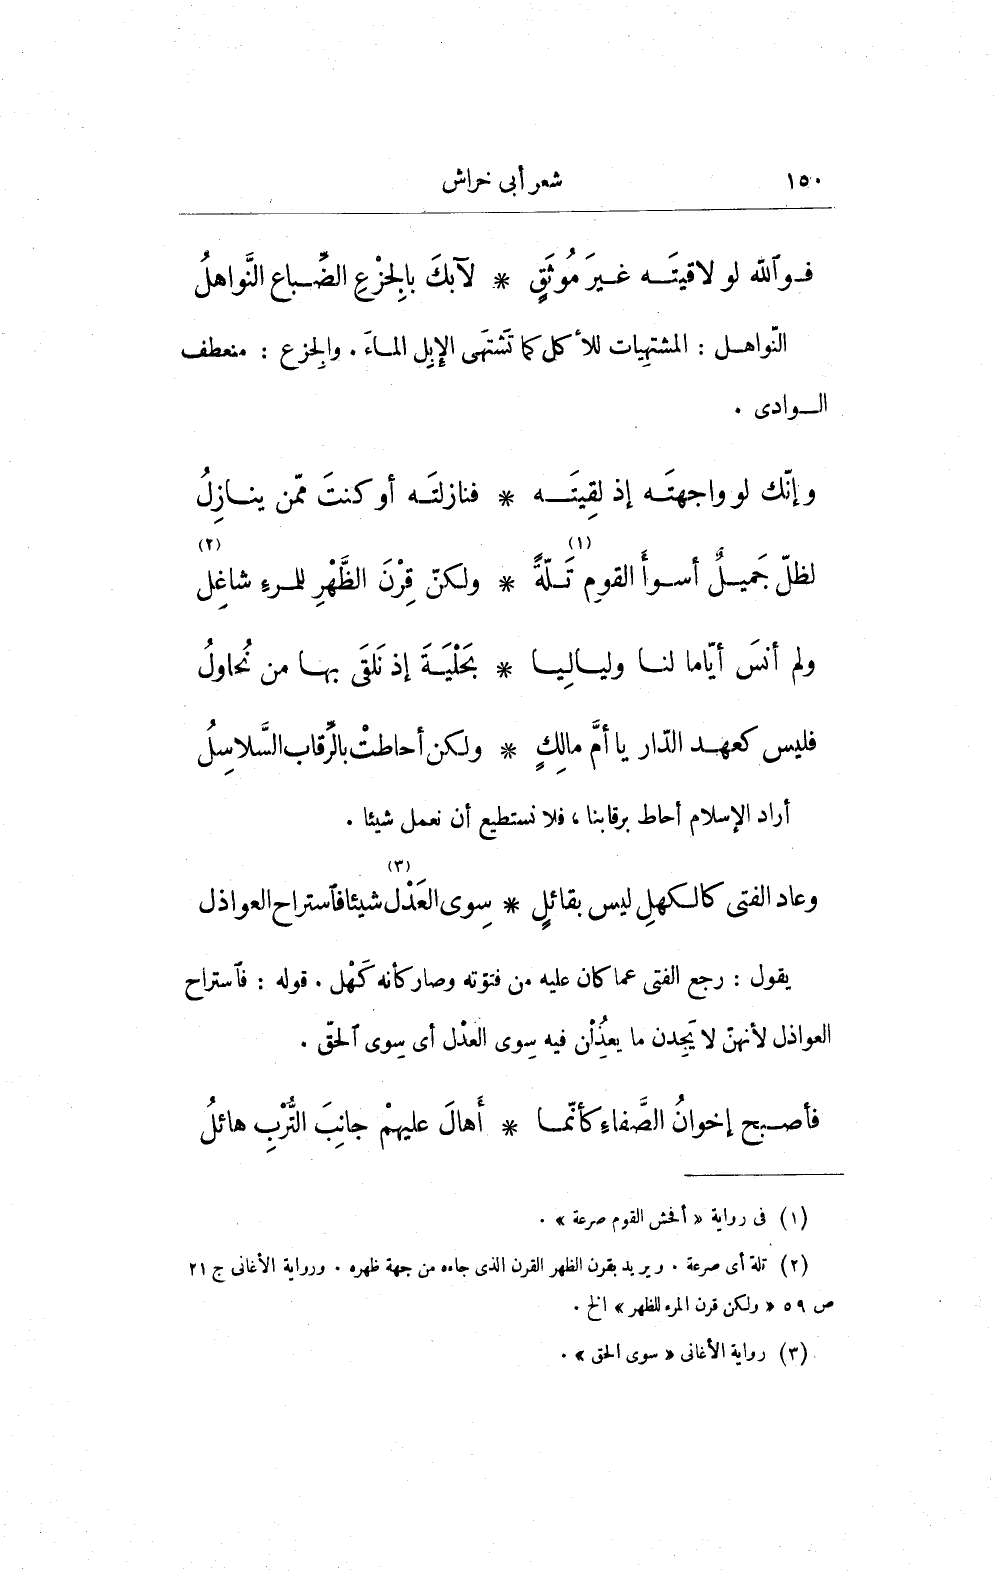 ١٥٠ شعر أبى خراش
فـوٱللّه لو لاقيتَـه غـيرَ مُوثَقٍ * لآبكَ بالِجزْعِ الضِّباع النَّواهلُ
النّواهـل : المشتهِيات للأكل كما تَشتهَى الإبِل المـاءَ . والِجزع : منعطف
الـوادى .
وإنّك لو واجهتَـه إذ لقِيتَـه * فنازلتَـه أو كنتَ ممّن ينـازِلُ
لظلّ جَميـلٌ أسـوأَ القومِ تَـلّةً (١) * ولكنّ قِرْنَ الظَّهْرِ للمرءِ شاغِل (٢)
ولم أنسَ أيّاما لنـا وليـالِيـا * بحَلْيَـةَ إذ نَلقَى بهـا من نُحاولُ
فليس كعهـد الدّار يا أمَّ مالِكٍ * ولكن أحاطتْ بالرِّقاب السَّلاسِلُ
أراد الإسلام أحاط برقابنا ، فلا نستطيع أن نعمل شيئا .
وعاد الفتى كالـكهلِ ليس بقائلٍ * سِوى العَذْل (٣) شيئا فٱستراح العواذل
يقول : رجع الفتى عما كان عليه من فتوّته وصار كأنه كَهْل . قوله : فٱستراح
العواذل لأنهنّ لا يَجِدن ما يعذُِلْن فيه سِوى العدْل أى سِوى ٱلحقّ .
فأصبح إخوانُ الصَّفاءِ كأنّمـا * أَهالَ عليهمْ جانِبَ التُّرْبِ هائلُ
(١) فى رواية « أفحش القوم صرعة » .
(٢) تلة أى صرعة . ويريد بقرن الظهر القرن الذى جاءه من جهة ظهره . ورواية الأغانى ج ٢١
ص ٥٩ « ولكن قرن المرء للظهر » الخ .
(٣) رواية الأغانى « سوى الحق » .